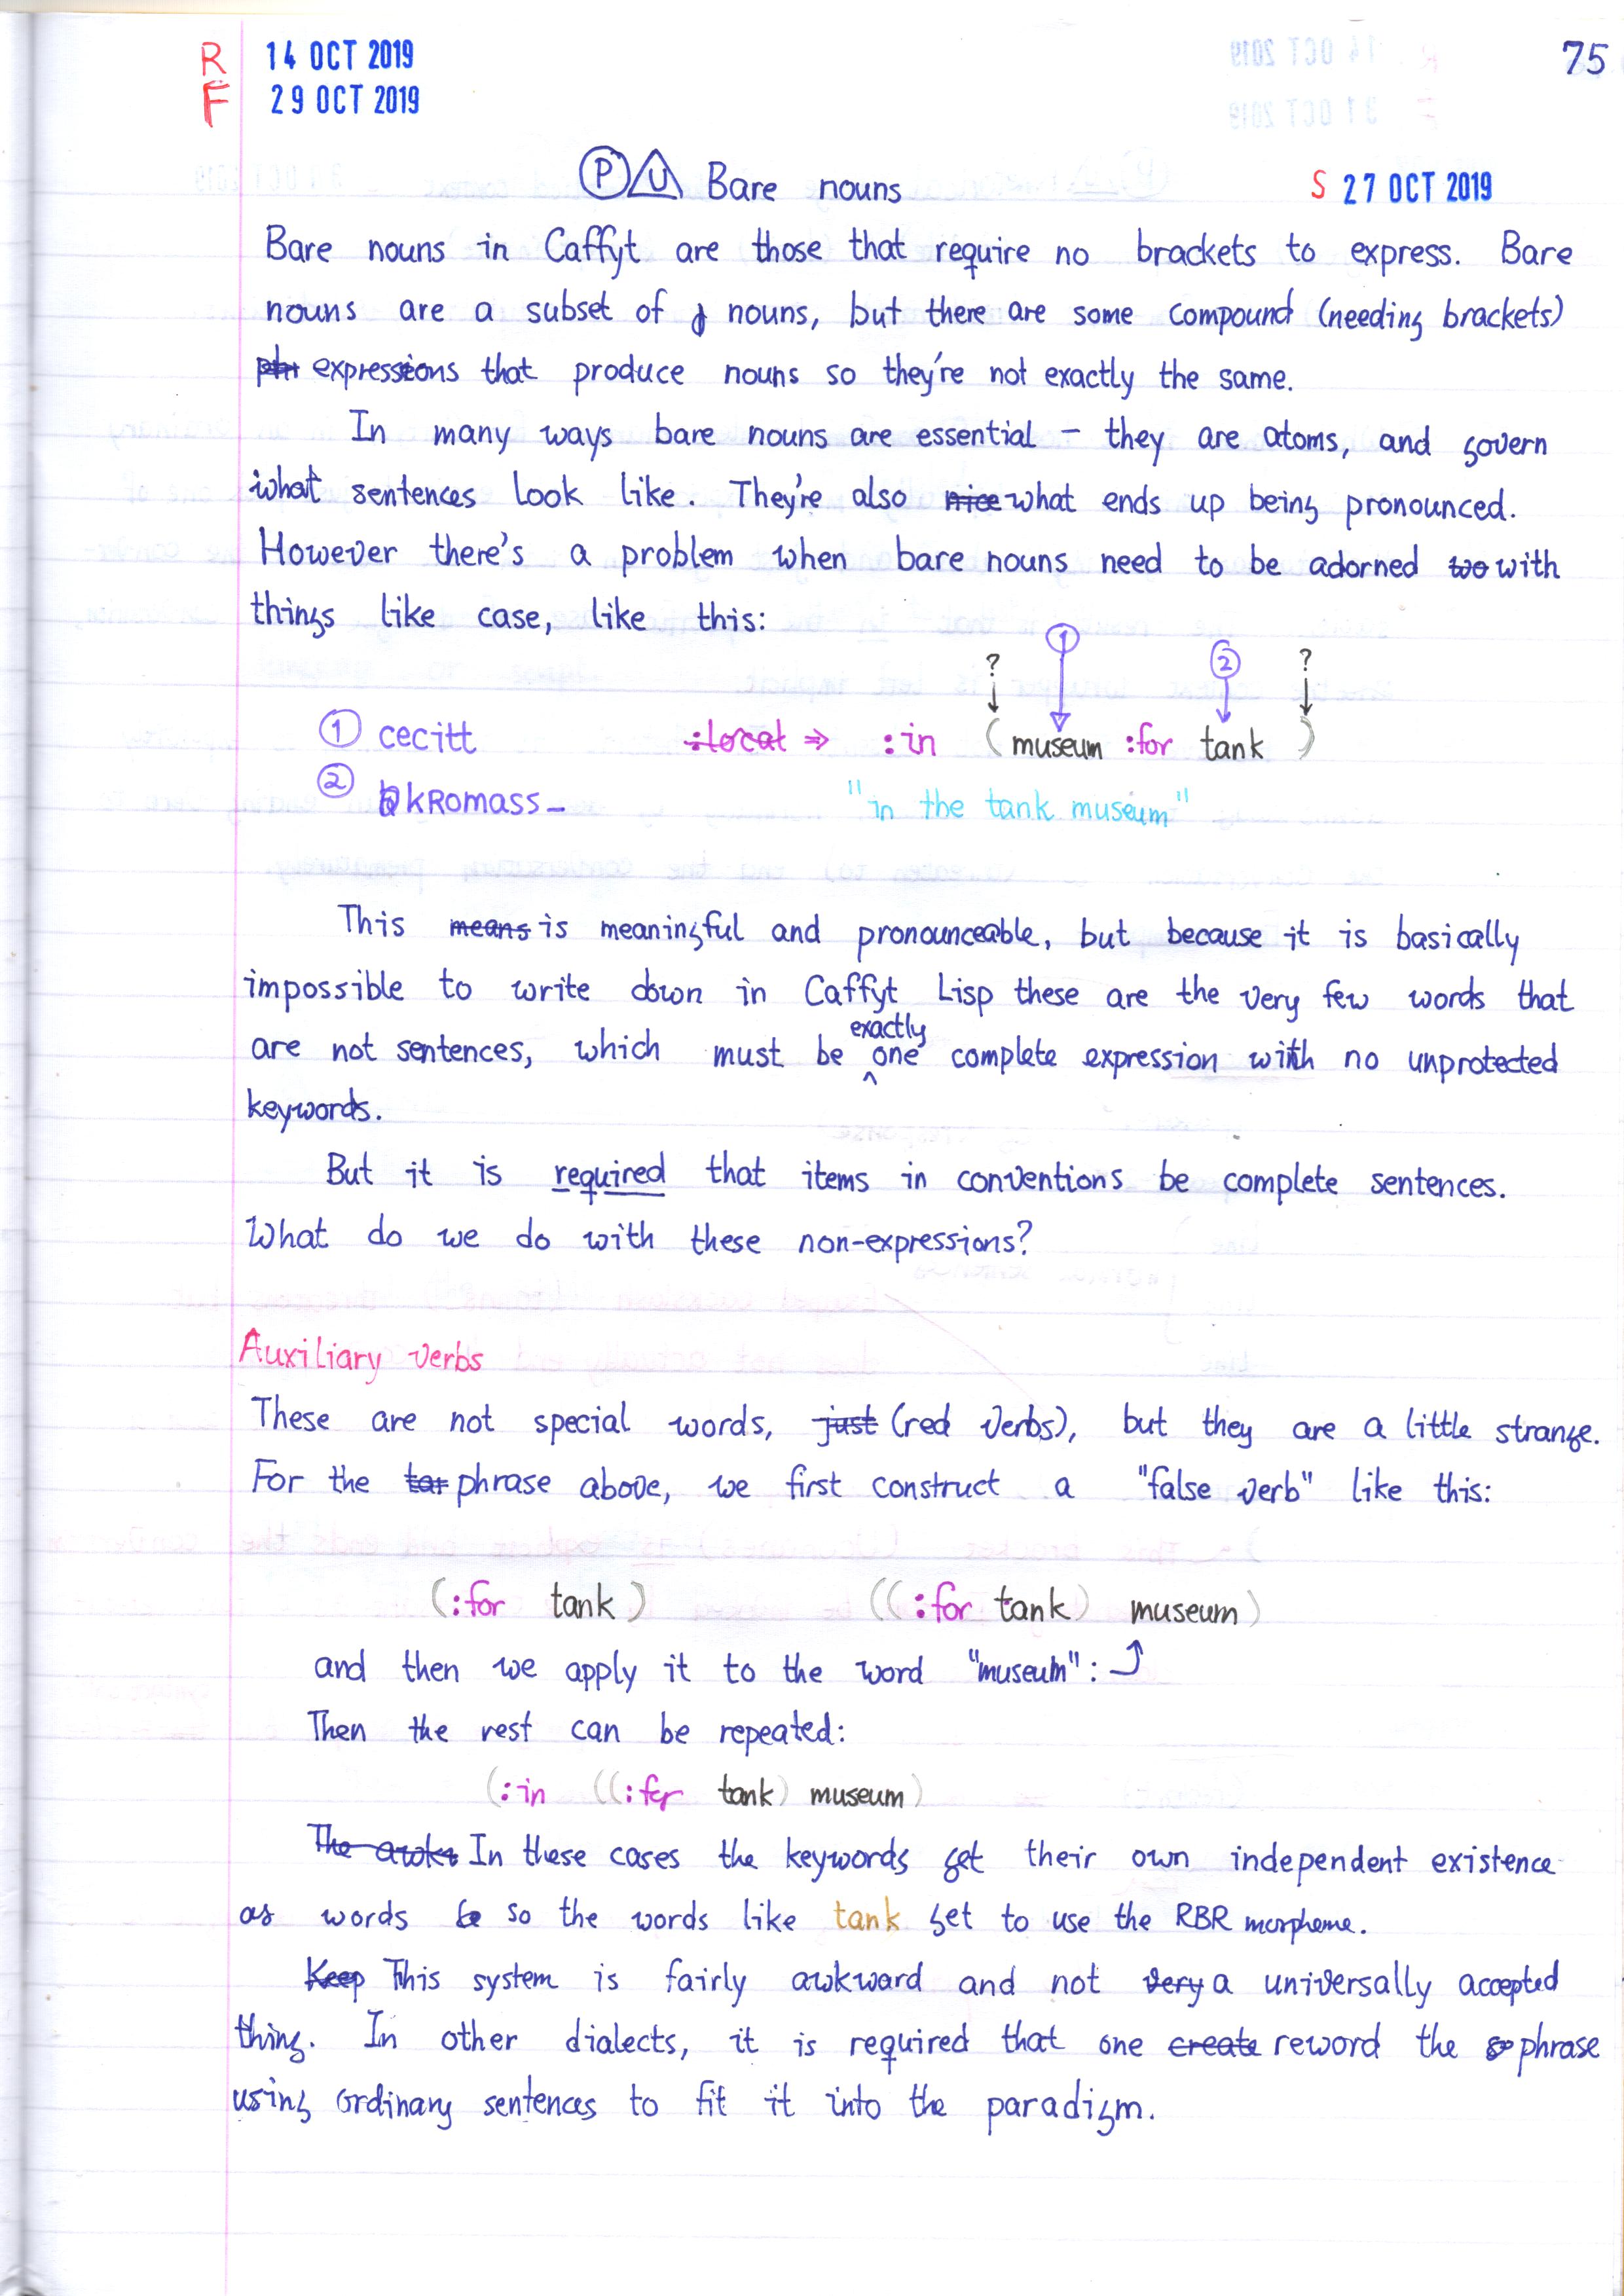 R 14 OCT 2019 75
F 29 OCT 2019
P U Bare nouns S 27 OCT 2019
Bare nouns in Caffyt are those that require no brackets to express. Bare
nouns are a subset of nouns, but there are some compound (needing brackets)
expressions that produce nouns so they're not exactly the same.
In many ways bare nouns are essential - they are atoms, and govern
what sentences look like. They're also nice what ends up being pronounced.
However there's a problem when bare nouns need to be adorned too with
things like case, like this:
? 1 2 ?
1 cecitt :locat ⇒ :in (museum :for tank)
2 kRomass_ "in the tank museum"
This means is meaningful and pronounceable, but because it is basically
impossible to write down in Caffyt Lisp these are the very few words that
are not sentences, which must be exactly one complete expression with no unprotected
keywords.
But it is required that items in conventions be complete sentences.
What do we do with these non-expressions?
Auxiliary verbs
These are not special words, just (red verbs), but they are a little strange.
For the tar phrase above, we first construct a "false verb" like this:
(:for tank) ((:for tank) museum)
and then we apply it to the word "museum":
Then the rest can be repeated:
(:in ((:for tank) museum)
The In these cases the keywords get their own independent existence
as words so the words like tank get to use the RBR morpheme.
Keep This system is fairly awkward and not very a universally accepted
thing. In other dialects, it is required that one create reword the phrase
using ordinary sentences to fit it into the paradigm.